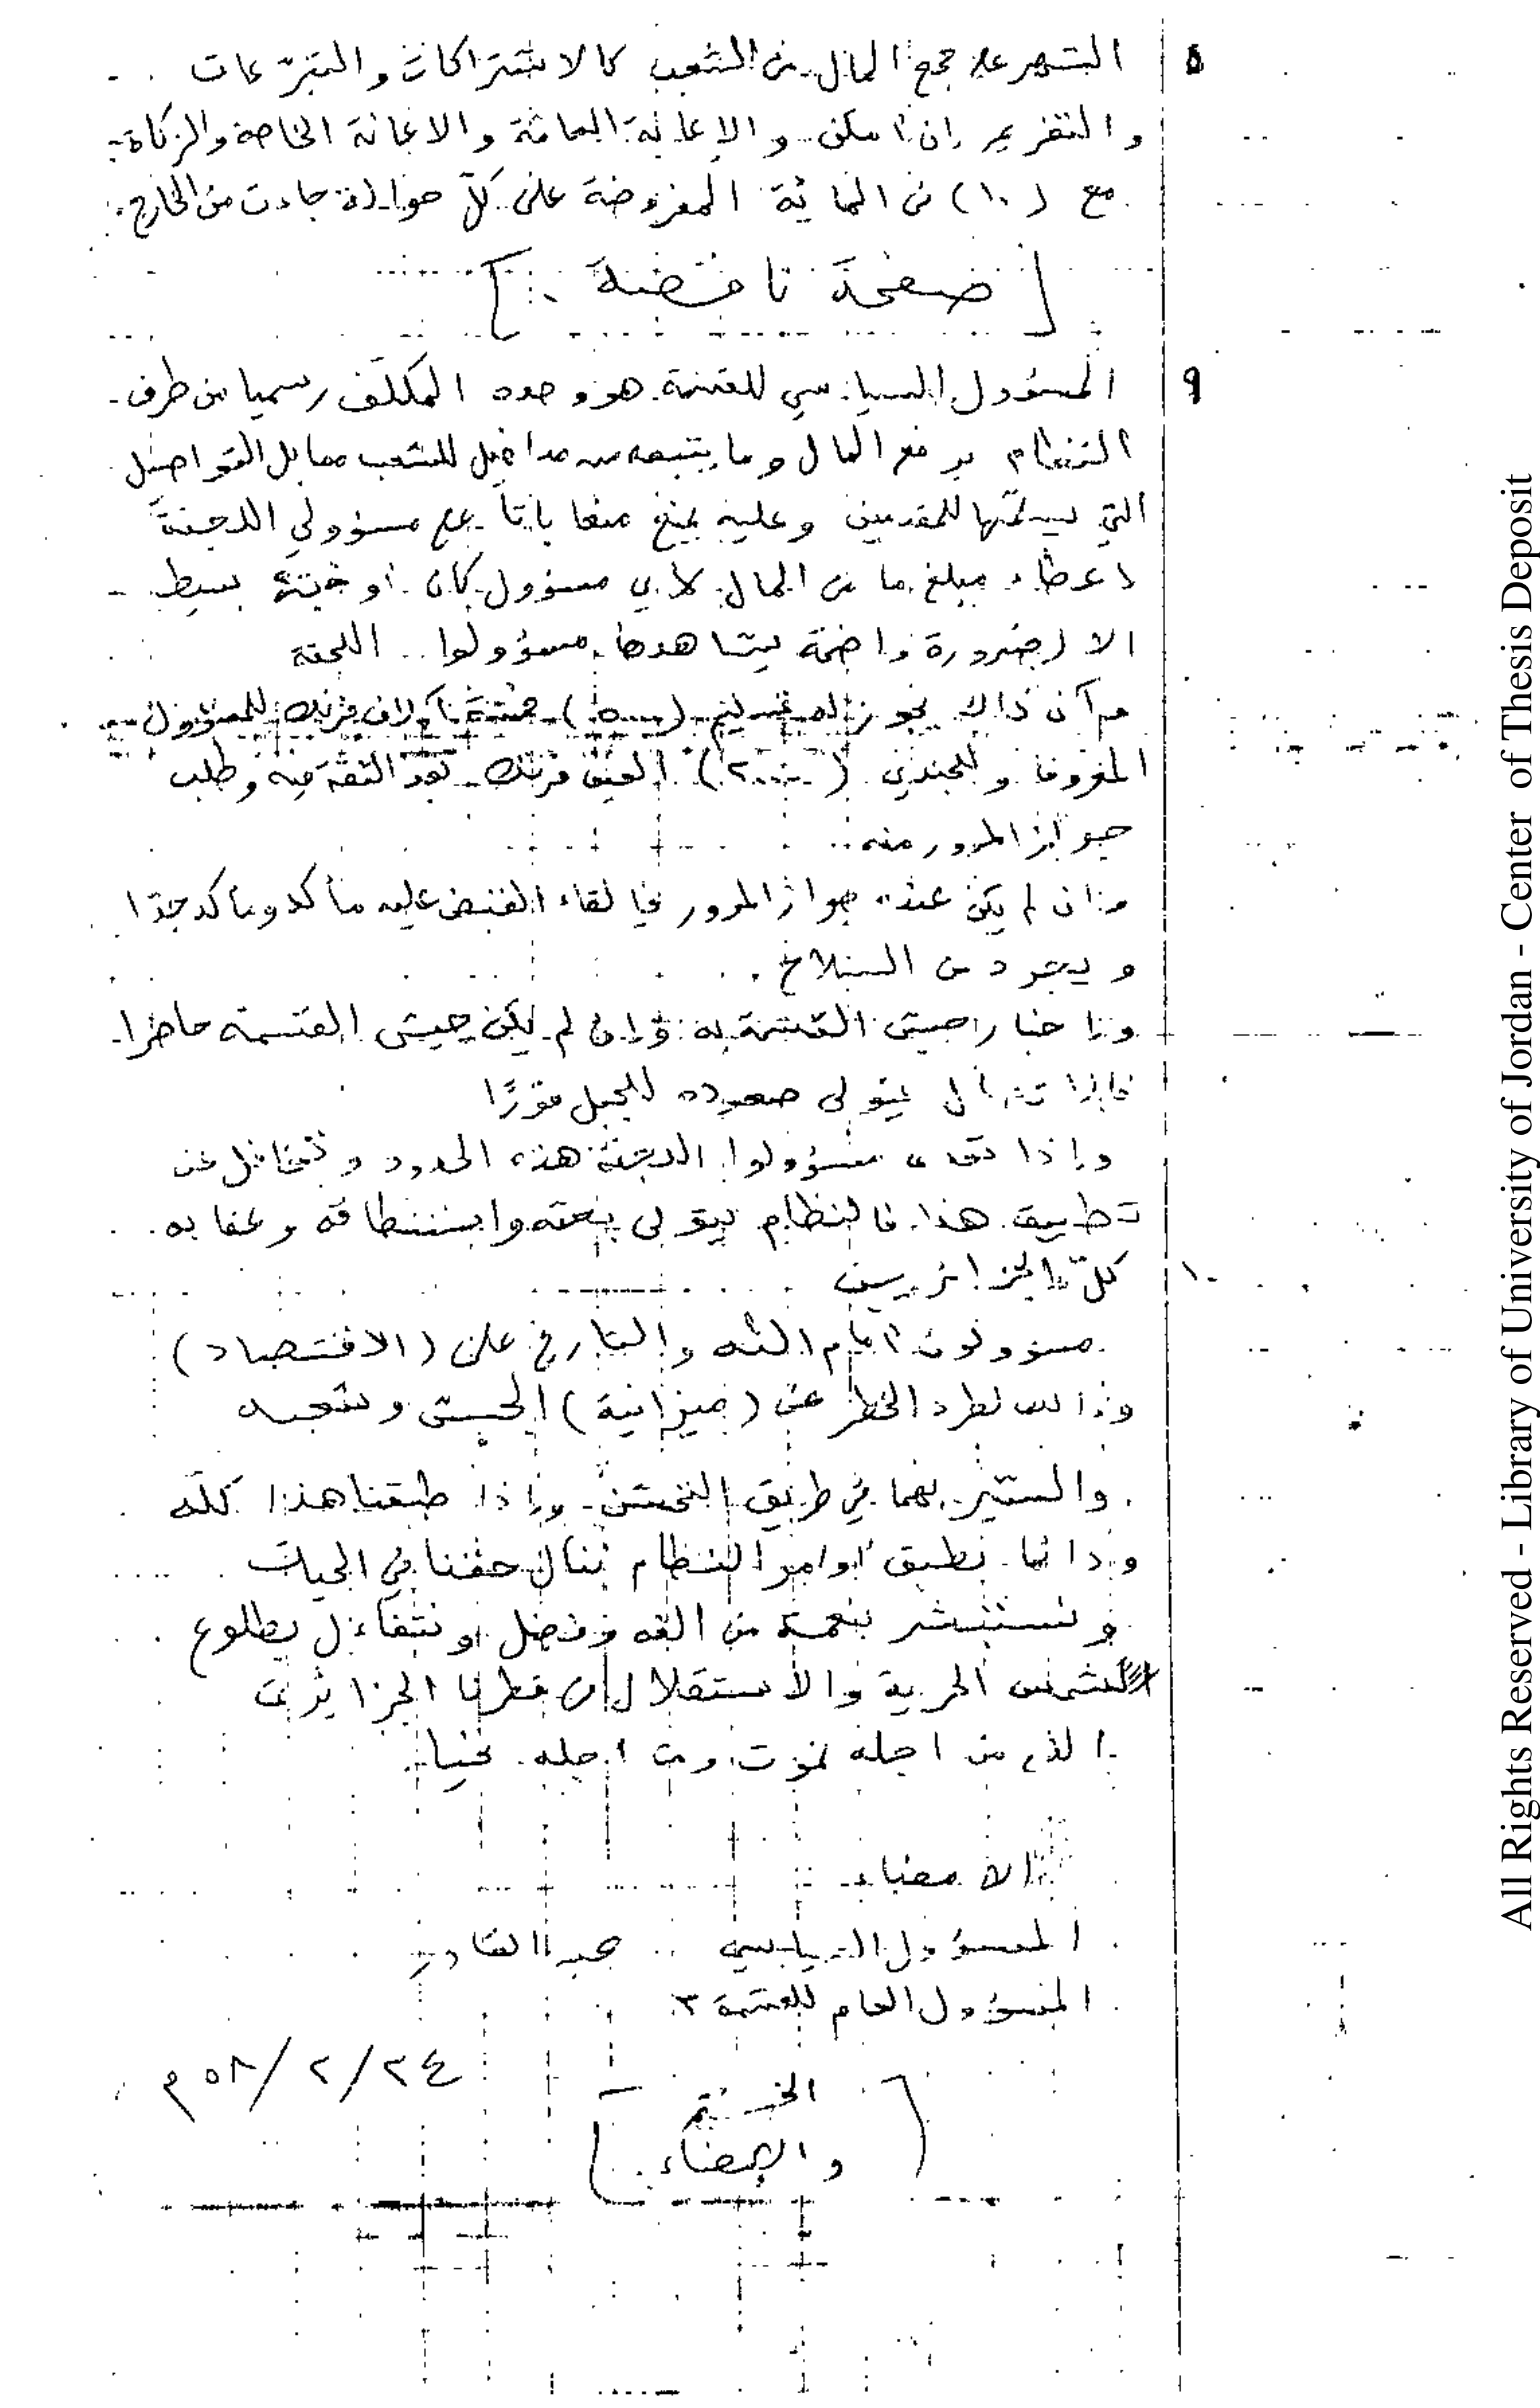 ٥ السهر على جمع المال من الشعب كالاشتراكات والتبرّعات
والتغريم إن أمكن والإعانة العامة والاعانة الخاصة والزكاة
مع (١٠) في المائة المفروضة على كلّ حوالة جاءت من الخارج
[صفحة ناقصة]
٩ المسؤول السياسي للقسمة هو وحده المكلّف رسميا من طرف
النظام برفع المال وما يتبعه من مداخيل للشعب مقابل التواصيل
التي يسلّمها للمقدمين وعليه يمنع منعا باتا على مسؤولي اللجنة
اعطاء مبلغ ما من المال لأي مسؤول كان أو بسيط
الا لضرورة واضحة يشاهدها مسؤولوا اللجنة
ذاك يجوز له تسليم (٥٠٠٠) خمسة آلاف فرنك للمسؤول
المعروف وللجندي (٢٠٠٠) ألفين فرنك بعد الثقة منه وطلب
جواز المرور منه
وان لم يكن عنده جواز المرور فإلقاء القبض عليه مأكد ومأكد جدّا
ويجرد من السلاح
واخبار جيش القسمة به وإن لم يكن جيش القسمة حاضرا
يتولى صعوده للجبل فورًا
وإذا تعدى مسؤولوا اللجنة هذه الحدود وتغافل عن
تطبيق هذا فالنظام يتولى بحثه واستنطاقه وعقابه
١٠ كلّ الجزائريين
مسؤولون أمام الله والتاريخ على (الاقتصاد)
وذالك لطرد الخطر عن (ميزانية) الجيش وشعبه
والسير بهما في طريق التحسّن وإذا طبقنا هذا كلّه
ودائما نطبق أوامر النظام ننال حقّنا في الحيات
ونستبشر بنعمة من الله وفضل ونتفاءل بطلوع
شمس الحرية والاستقلال قطرنا الجزائري
الذي من اجله نموت ومن اجله نحيا
الامضاء
المسؤول السياسي عبد القادر
المسؤول العام للقسمة ٣
٢٤/٢/٥٨م
[الختم
والإمضاء]
All Rights Reserved - Library of University of Jordan - Center of Thesis Deposit